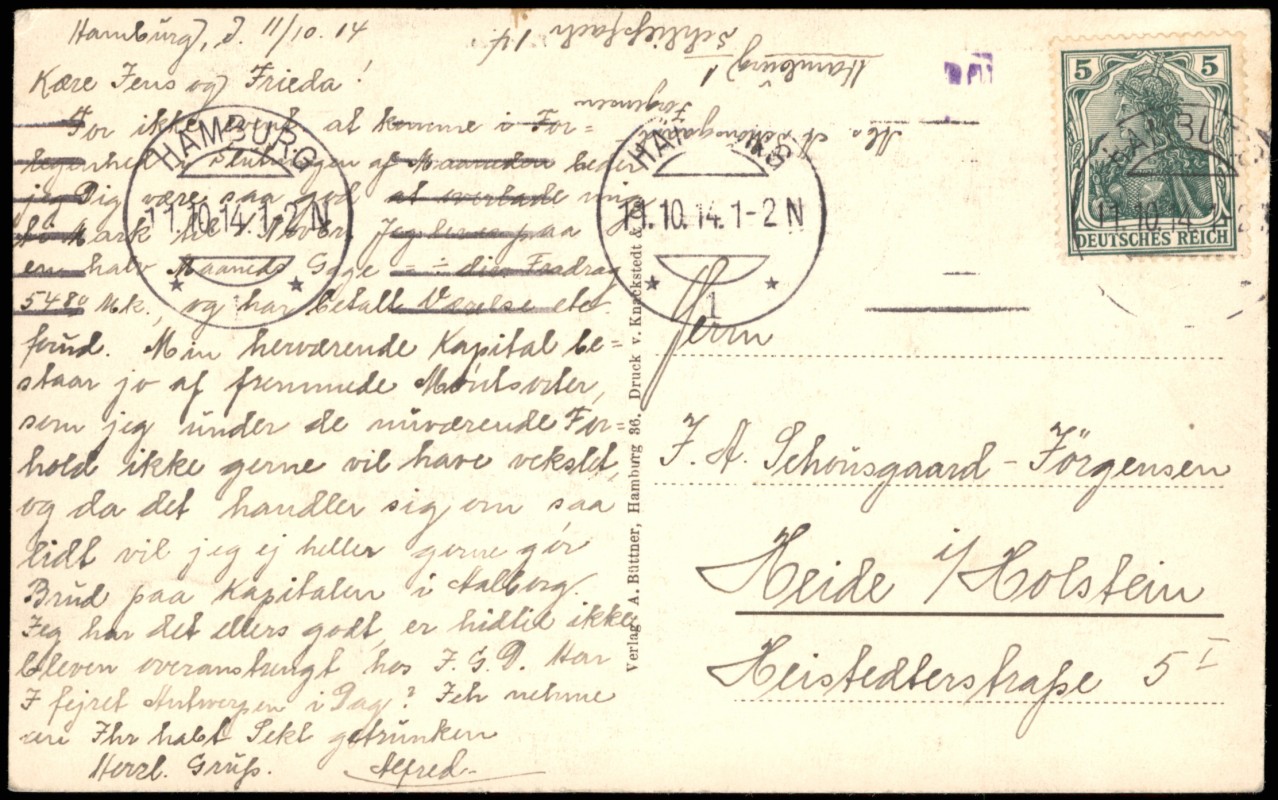 Hamburg, d. 11/10. 14
Kære Jens og Frieda!
For ikke event. at komme i For=
legenhed i Slutningen af Maaneden beder
jeg Dig være saa god at overlade mig
Mark Jeg paa
en halv Maaneds Gage = ÷ div. Fradrag
54⁸⁰ Mk., og har betalt Værelse etc.
forud. Min herværende Kapital be=
staar jo af fremmede Møntsorter,
som jeg under de nuværende For=
hold ikke gerne vil have vekslet,
og da det handler sig om saa
lidt vil jeg ej heller gerne gør
Brud paa Kapitalen i Aalborg.
Jeg har det ellers godt, er hidtil ikke
bleven overanstrengt hos J. G. D. Har
I fejret Antwerpen i Dag? Ich nehme
an Ihr habt Sekt getrunken
Herzl. Gruß. Alfred
Abs. A. Schousgaard
Jørgensen
Hamburg 1
Schließfach 14.
HAMBURG
11.10.14.1-2N
1
HAMBURG
11.10.14.1-2N
1
HAMBURG
11.10.14.1-2
5 5
DEUTSCHES REICH
Verlag A. Büttner, Hamburg 36. Druck v. Knackstedt &
Herrn
J. A. Schousgaard-Jörgensen
Heide i/Holstein
Heistedterstraße 5 I